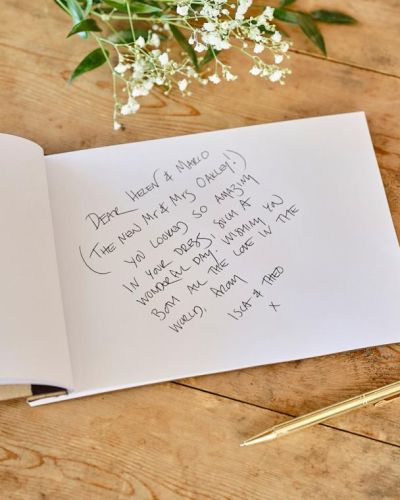 DEAR HELEN & MARLO
(THE NEW MR & MRS OAKLEY!)
YOU LOOKED SO AMAZING
IN YOUR DRESS, SUCH A
WONDERFUL DAY. WISHING YOU
BOTH ALL THE LOVE IN THE
WORLD, FROM
ISLA & THEO
X